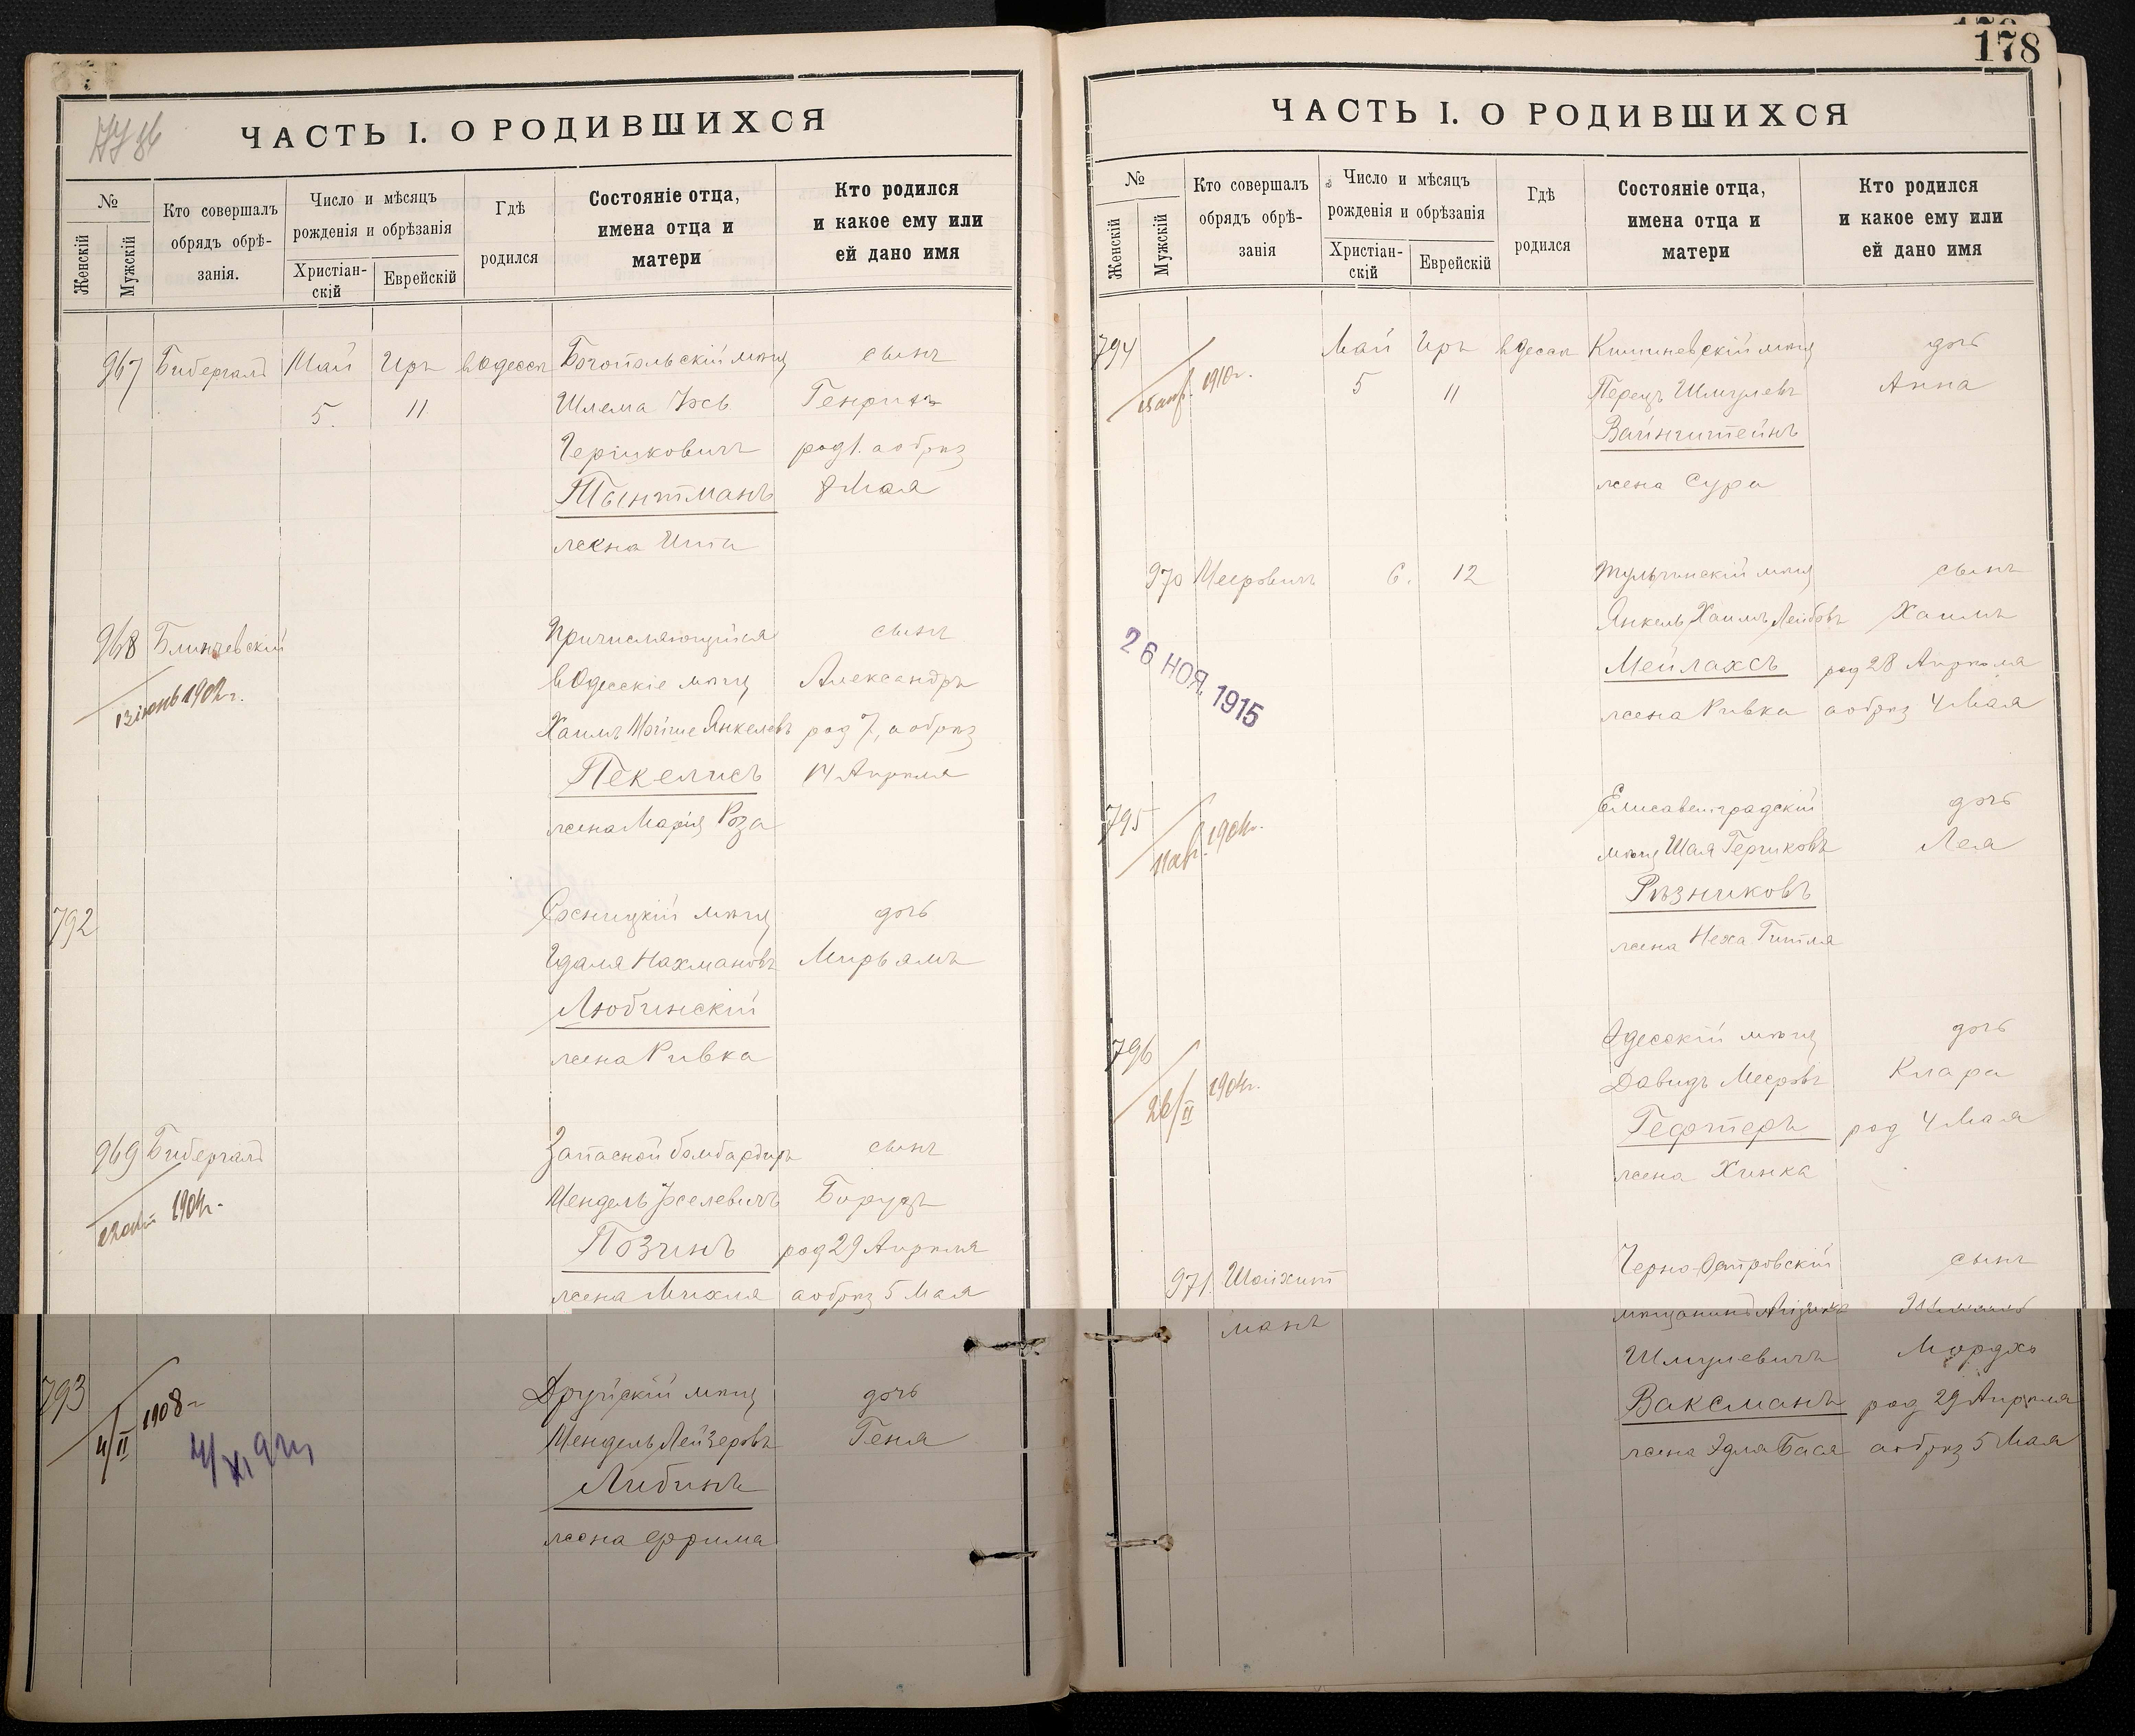 178
ЧАСТЬ I. О РОДИВШИХСЯ
№
Женскій
Мужскій
Кто совершалъ
обрядъ обрѣ-
занія.
Число и мѣсяцъ
рожденія и обрѣзанія
Христіан-
скій
Еврейскій
Гдѣ
родился
Состояніе отца,
имена отца и
матери
Кто родился
и какое ему или
ей дано имя
967 Бибергалъ Май Иръ вОдессѣ Богопольскій мѣщ сынъ
5. 11 Шлема Генрихъ
Гершковичъ род 1. а обрѣз
Тынтманъ 8 Мая
жена Ита
968 Блинчевскій Причисляющійся сынъ
в Одесскіе мѣщ Александръ
13 іюнь 1902 г.
Хаимъ Мойше Янкелевъ род 7, а обрѣз
Пекелисъ 14 Апрѣля
жена Марія Роза
792 Сосницкій мѣщ дочь
Идаля Нахмановъ Мирьямъ
Любинскій
жена Ривка
969 Бибергалъ Запасной бомбардиръ сынъ
1904г.
Мендель Іоселевичъ Борухъ
Позинъ род 29 Апрѣля
жена Михля а обрѣз 5 Мая
793 Друйскій мѣщ дочь
4/II 1908 г
Мендель Лейзеровъ Геня
Либинъ
жена Фрума
ЧАСТЬ I. О РОДИВШИХСЯ
№
Женскій
Мужскій
Кто совершалъ
обрядъ обрѣ-
занія
Число и мѣсяцъ
рожденія и обрѣзанія
Христіан-
скій
Еврейскій
Гдѣ
родился
Состояніе отца,
имена отца и
матери
Кто родился
и какое ему или
ей дано имя
794 Май Иръ вОдессѣ Кишиневскій мѣщ дочь
1910г.
5 11 Перецъ Шмулевъ Анна
Вайнштейнъ
жена Сура
970 Мееровичъ 6. 12 Тульчинскій мѣщ сынъ
Янкель Хаимъ Лейбовъ Хаимъ
26 НОЯ. 1915
Мейлахсъ род 28 Апрѣля
жена Ривка а обрѣз 4 Мая
795 Елисаветградскій дочь
мѣщ Шая Гершковъ Лея
Рѣзниковъ
жена Неха Гитля
796 Одесскій мѣщ дочь
26/II 1904г.
Давидъ Мееровъ Клара
Гефтеръ род 4 Мая
жена Хинка
971. Шойхит Черно-Островскій сынъ
манъ мѣщанинъ
Шмулевичъ Мордхо
Ваксманъ род 29 Апрѣля
жена Эдля Бася а обрѣз 5 Мая